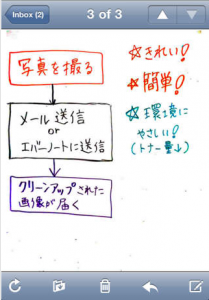 Inbox (2)
3 of 3
写真を撮る
メール送信
or
エバーノートに送信
クリーンアップされた
画像が届く
☆きれい!
☆簡単!
☆環境に
やさしい!
(トナー量↓)